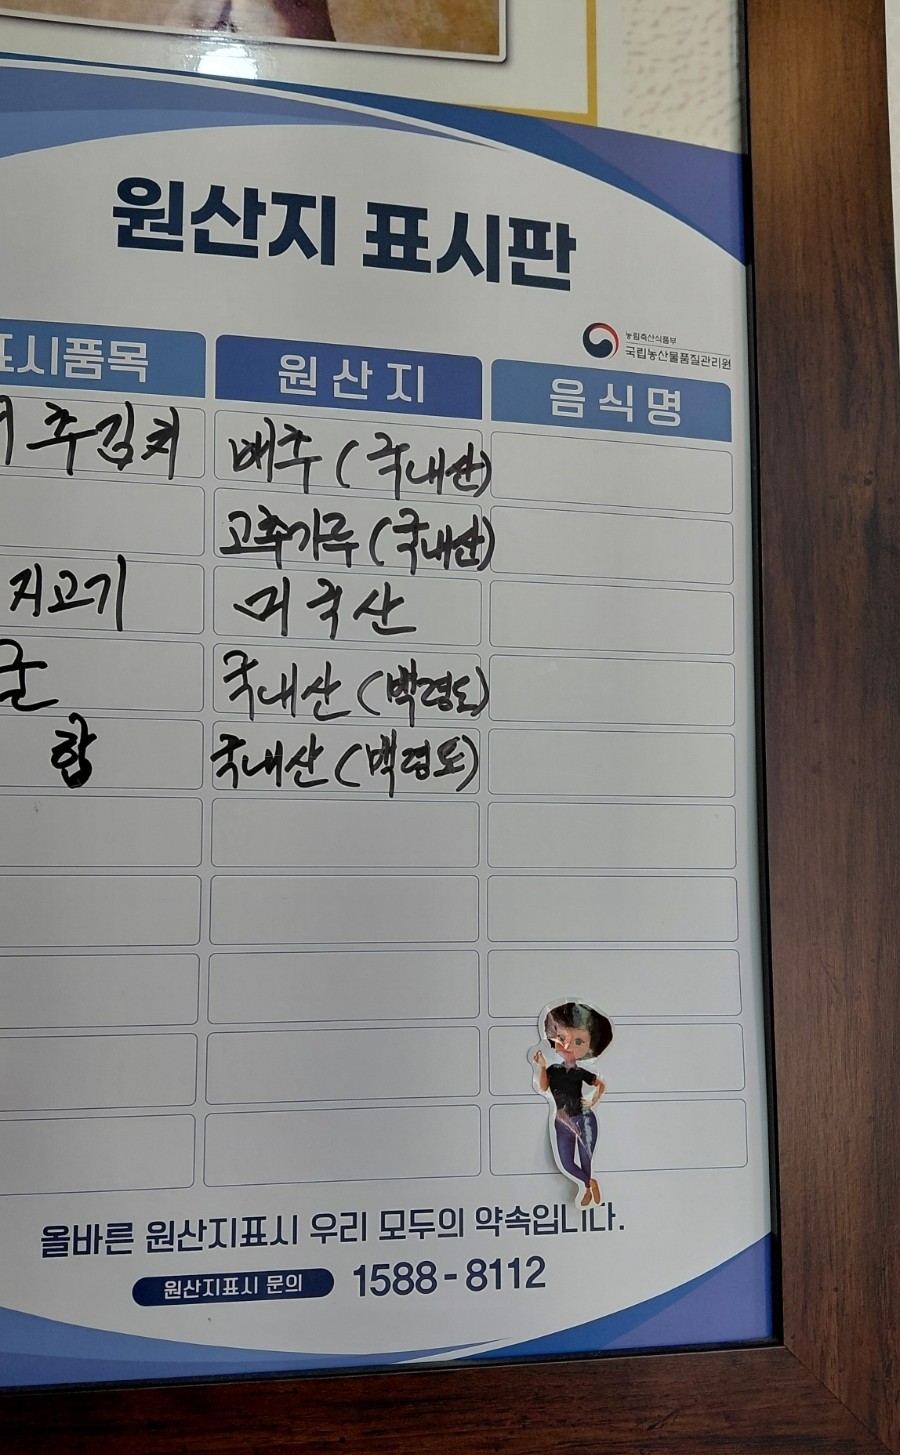 원산지 표시판
농림축산식품부
국립농산물품질관리원
표시품목 원산지 음식명
배추김치 배추(국내산)
고추가루(국내산)
지고기 미국산
굴 국내산(백령도)
합 국내산(백령도)
올바른 원산지표시 우리 모두의 약속입니다.
원산지표시 문의 1588-8112